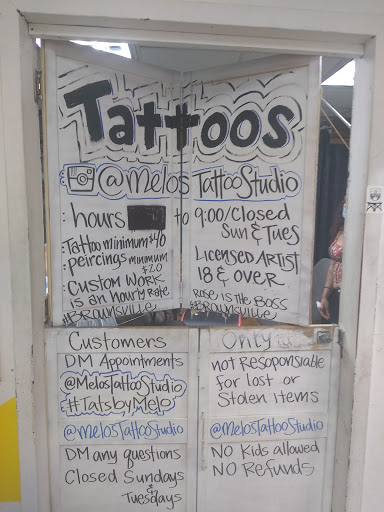 Tattoos
@melosTattooStudio
: hours to 9:00/Closed
Sun & Tues
:Tattoo minimum $40
:peircings mumumum
$20
:Custom Work
is an houry Rate
#Brownsville
Licensed Artist
18 & over
Rose is the Boss
#Brownsville
Customers
DM Appointments
@MelosTattooStudio
#TatsbyMelo
@melosTattooStudio
DM any questions
Closed Sundays
&
Tuesdays
Only
not Resoponsiable
for lost or
Stolen items
@melosTattooStudio
No Kids allowed
NO Refunds